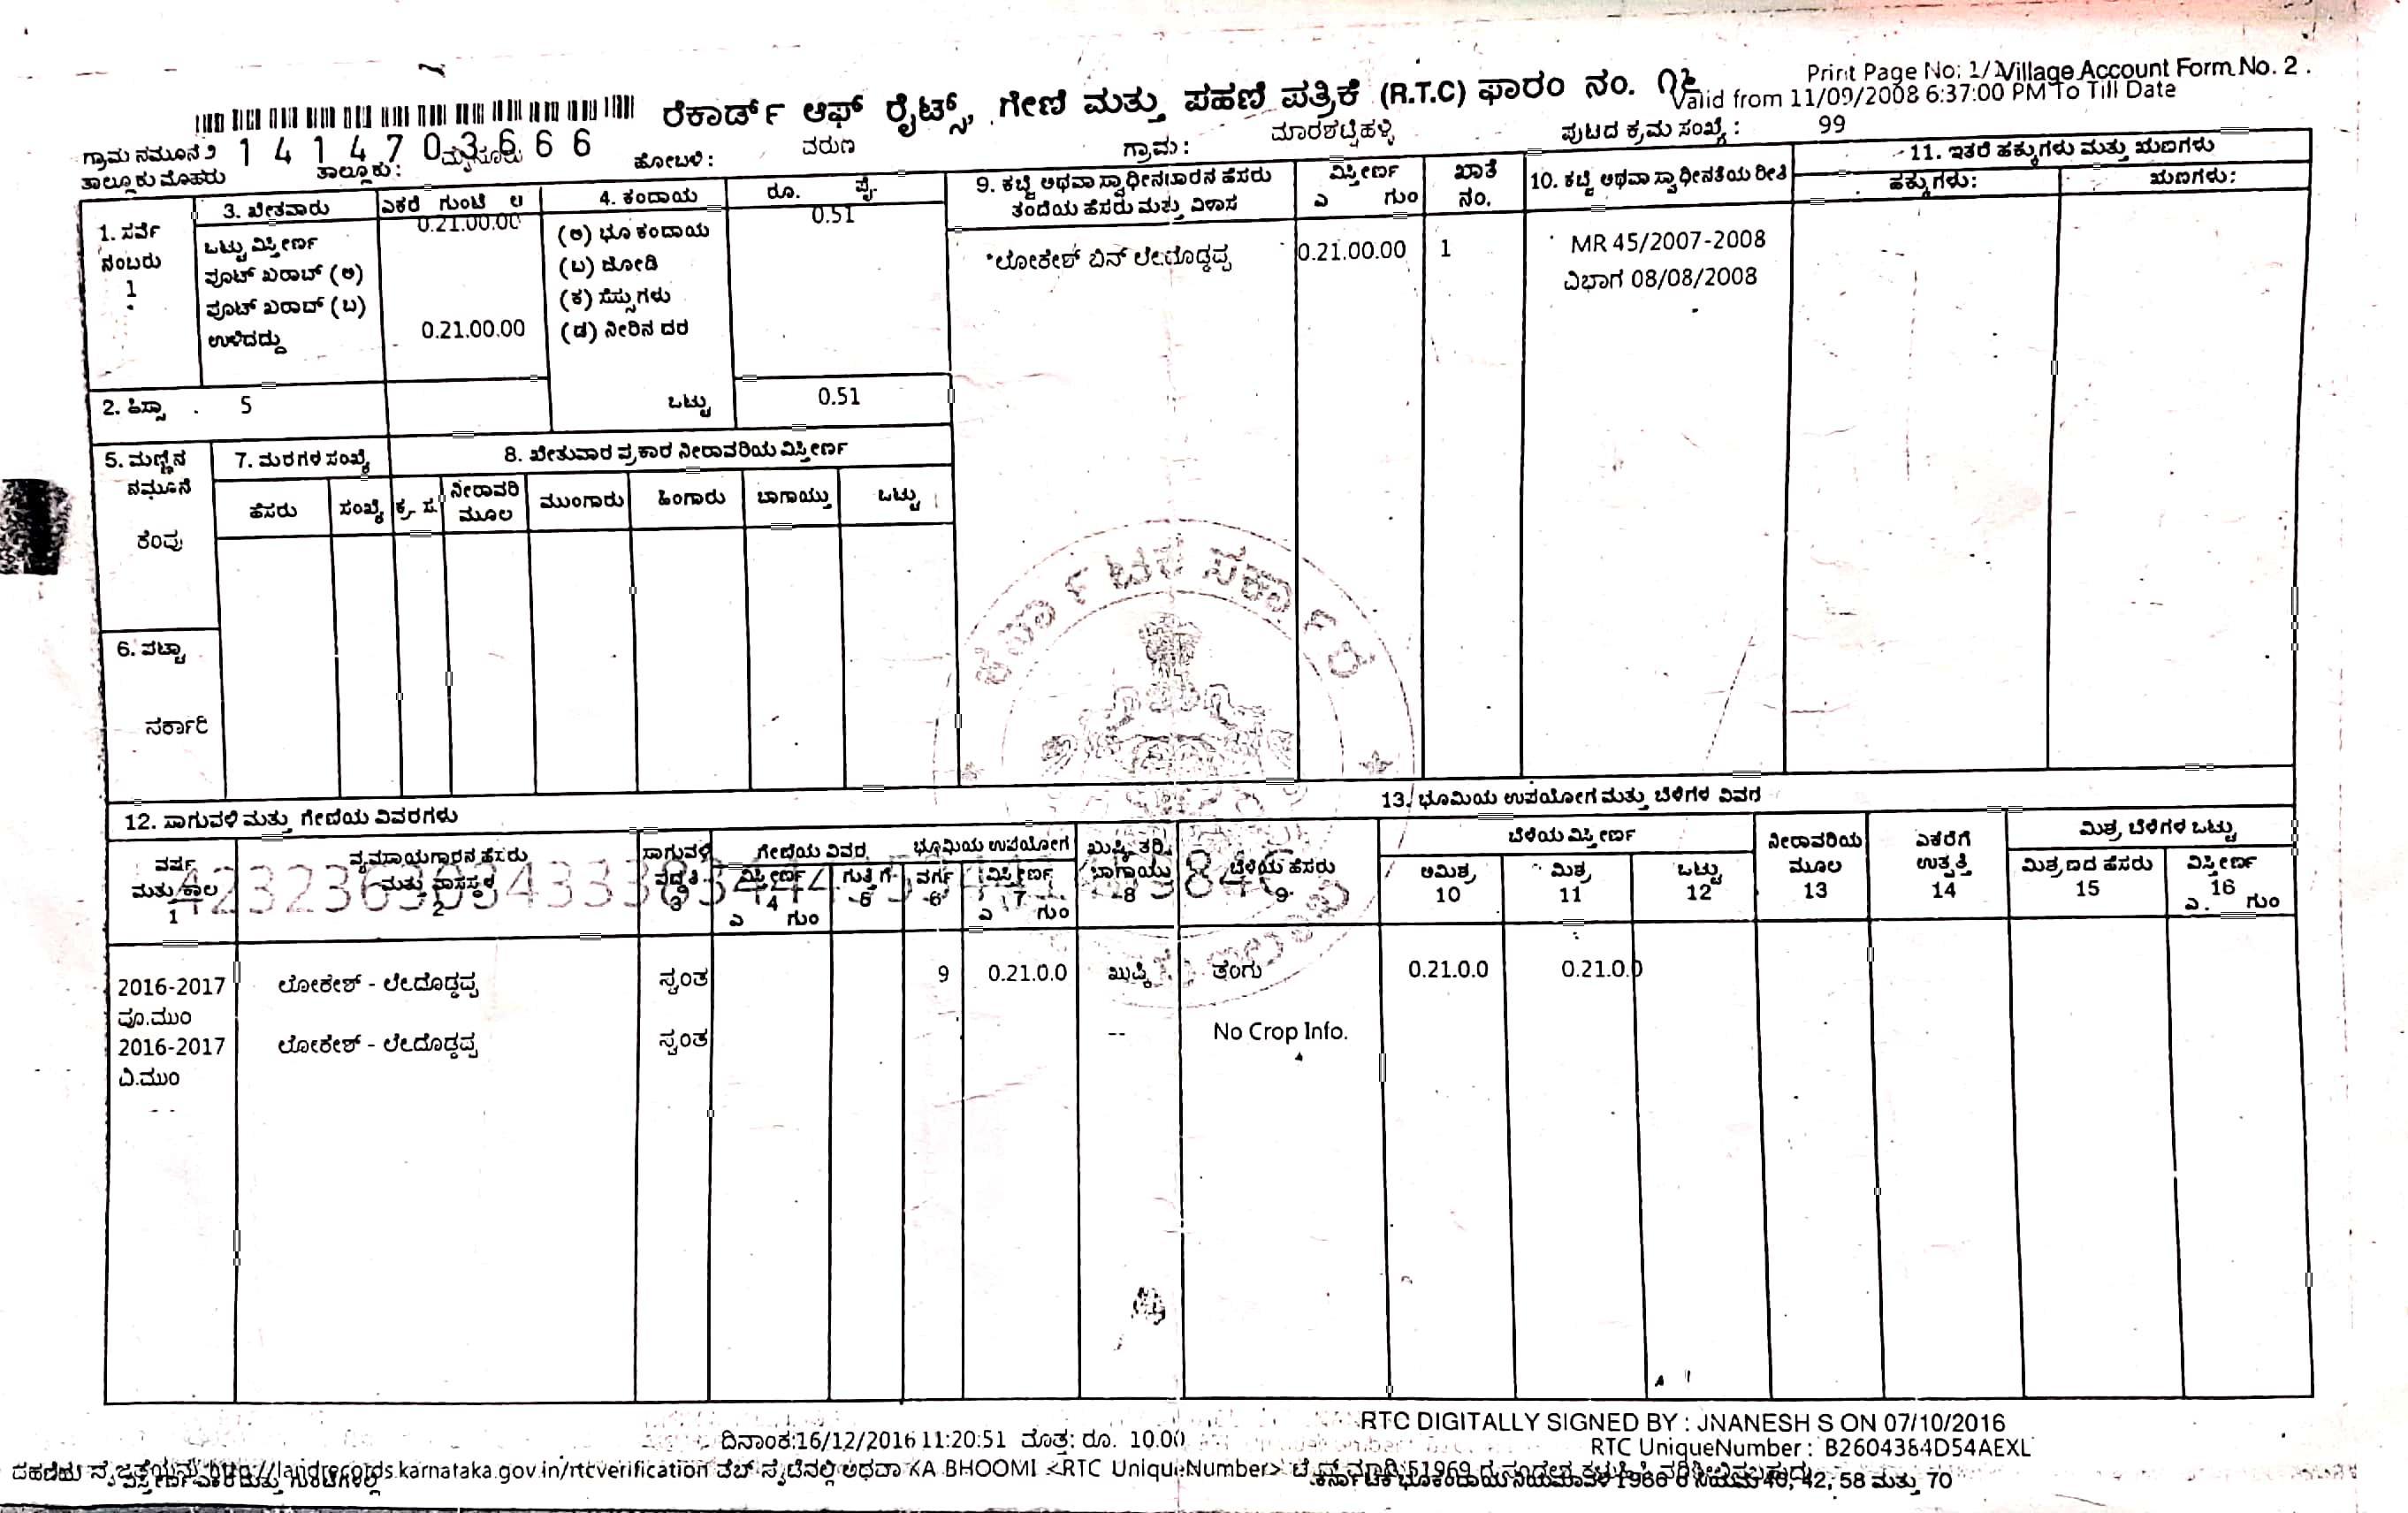 Print Page No: 1/1 Village Account Form No. 2 .
ರೆಕಾರ್ಡ್ ಆಫ್ ರೈಟ್ಸ್, ಗೇಣಿ ಮತ್ತು ಪಹಣಿ ಪತ್ರಿಕೆ (R.T.C) ಫಾರಂ ನಂ. ೧೬
Valid from 11/09/2008 6:37:00 PM To Till Date
ಗ್ರಾಮ ನಮೂನೆ ೨ 1 4 1 4 7 0 3 6 6 6
ತಾಲ್ಲೂಕು ಮೊಹರು ತಾಲ್ಲೂಕು : ಮೈಸೂರು ಹೋಬಳಿ : ವರುಣ ಗ್ರಾಮ : ಮಾರಶೆಟ್ಟಿಹಳ್ಳಿ ಪುಟದ ಕ್ರಮ ಸಂಖ್ಯೆ : 99
1. ಸರ್ವೆ ನಂಬರು
1
3. ಖೇತವಾರು ಎಕರೆ ಗುಂಟೆ
ಒಟ್ಟು ವಿಸ್ತೀರ್ಣ 0.21.00.00
ಪೂಟ್ ಖರಾಬ್ (ಅ)
ಪೂಟ್ ಖರಾಬ್ (ಬ)
ಉಳಿದದ್ದು 0.21.00.00
4. ಕಂದಾಯ ರೂ. ಪೈ.
(ಅ) ಭೂ ಕಂದಾಯ 0.51
(ಬ) ಜೋಡಿ
(ಕ) ಸೆಸ್ಸುಗಳು
(ಡ) ನೀರಿನ ದರ
ಒಟ್ಟು 0.51
2. ಹಿಸ್ಸಾ . 5
9. ಕಬ್ಜೆ ಅಥವಾ ಸ್ವಾಧೀನದಾರನ ಹೆಸರು
ತಂದೆಯ ಹೆಸರು ಮತ್ತು ವಿಳಾಸ
ವಿಸ್ತೀರ್ಣ
ಎ ಗುಂ
ಖಾತೆ ನಂ.
10. ಕಬ್ಜೆ ಅಥವಾ ಸ್ವಾಧೀನತೆಯ ರೀತಿ
11. ಇತರೆ ಹಕ್ಕುಗಳು ಮತ್ತು ಋಣಗಳು
ಹಕ್ಕುಗಳು: ಋಣಗಳು:
ಲೋಕೇಶ್ ಬಿನ್ ಲೇ.ದೊಡ್ಡಪ್ಪ 0.21.00.00 1 MR 45/2007-2008
ವಿಭಾಗ 08/08/2008
5. ಮಣ್ಣಿನ ನಮೂನೆ
ಕೆಂಪು
7. ಮರಗಳ ಸಂಖ್ಯೆ
ಹೆಸರು ಸಂಖ್ಯೆ
8. ಖೇತುವಾರ ಪ್ರಕಾರ ನೀರಾವರಿಯ ವಿಸ್ತೀರ್ಣ
ಕ್ರ. ಸ. ನೀರಾವರಿ ಮೂಲ ಮುಂಗಾರು ಹಿಂಗಾರು ಬಾಗಾಯ್ತು ಒಟ್ಟು
6. ಪಟ್ಟಾ
ಸರ್ಕಾರಿ
ಕರ್ನಾಟಕ ಸರ್ಕಾರ
12. ಸಾಗುವಳಿ ಮತ್ತು ಗೇಣಿಯ ವಿವರಗಳು
13. ಭೂಮಿಯ ಉಪಯೋಗ ಮತ್ತು ಬೆಳೆಗಳ ವಿವರ
ವರ್ಷ ಮತ್ತು ಕಾಲ 1
ವ್ಯವಸಾಯಗಾರನ ಹೆಸರು ಮತ್ತು ವಾಸಸ್ಥಳ 2
ಸಾಗುವಳಿ ಪದ್ಧತಿ 3
ಗೇಣಿಯ ವಿವರ
ವಿಸ್ತೀರ್ಣ 4 ಎ ಗುಂ
ಗುತ್ತಿಗೆ 5
ಭೂಮಿಯ ಉಪಯೋಗ
ವರ್ಗ 6
ವಿಸ್ತೀರ್ಣ 7 ಎ ಗುಂ
ಖುಷ್ಕಿ ತರಿ, ಬಾಗಾಯ್ತು 8
ಬೆಳೆಯ ಹೆಸರು 9
ಬೆಳೆಯ ವಿಸ್ತೀರ್ಣ
ಅಮಿಶ್ರ 10
ಮಿಶ್ರ 11
ಒಟ್ಟು 12
ನೀರಾವರಿಯ ಮೂಲ 13
ಎಕರೆಗೆ ಉತ್ಪತ್ತಿ 14
ಮಿಶ್ರ ಬೆಳೆಗಳ ಒಟ್ಟು
ಮಿಶ್ರಣದ ಹೆಸರು 15
ವಿಸ್ತೀರ್ಣ 16 ಎ. ಗುಂ
2016-2017 ಲೋಕೇಶ್ - ಲೇ.ದೊಡ್ಡಪ್ಪ ಸ್ವಂತ 9 0.21.0.0 ಖುಷ್ಕಿ ತೆಂಗು 0.21.0.0 0.21.0.0
ಪೂ.ಮುಂ
2016-2017 ಲೋಕೇಶ್ - ಲೇ.ದೊಡ್ಡಪ್ಪ ಸ್ವಂತ -- No Crop Info.
ವಿ.ಮುಂ
RTC DIGITALLY SIGNED BY : JNANESH S ON 07/10/2016
ದಿನಾಂಕ:16/12/2016 11:20:51 ಮೊತ್ತ: ರೂ. 10.00
RTC UniqueNumber : B2604384D54AEXL
http://landrecords.karnataka.gov.in/rtcverification ವೆಬ್ ಸೈಟಿನಲ್ಲಿ ಅಥವಾ KA BHOOMI <RTC UniqueNumber> ಟೈಪ್ ಮಾಡಿ 51969
ವಿಸ್ತೀರ್ಣ ಎಕರೆ ಮತ್ತು ಗುಂಟೆಗಳಲ್ಲಿ
ಕರ್ನಾಟಕ ಭೂಕಂದಾಯ ನಿಯಮಾವಳಿ 1966 ರ ನಿಯಮ 40, 42, 58 ಮತ್ತು 70